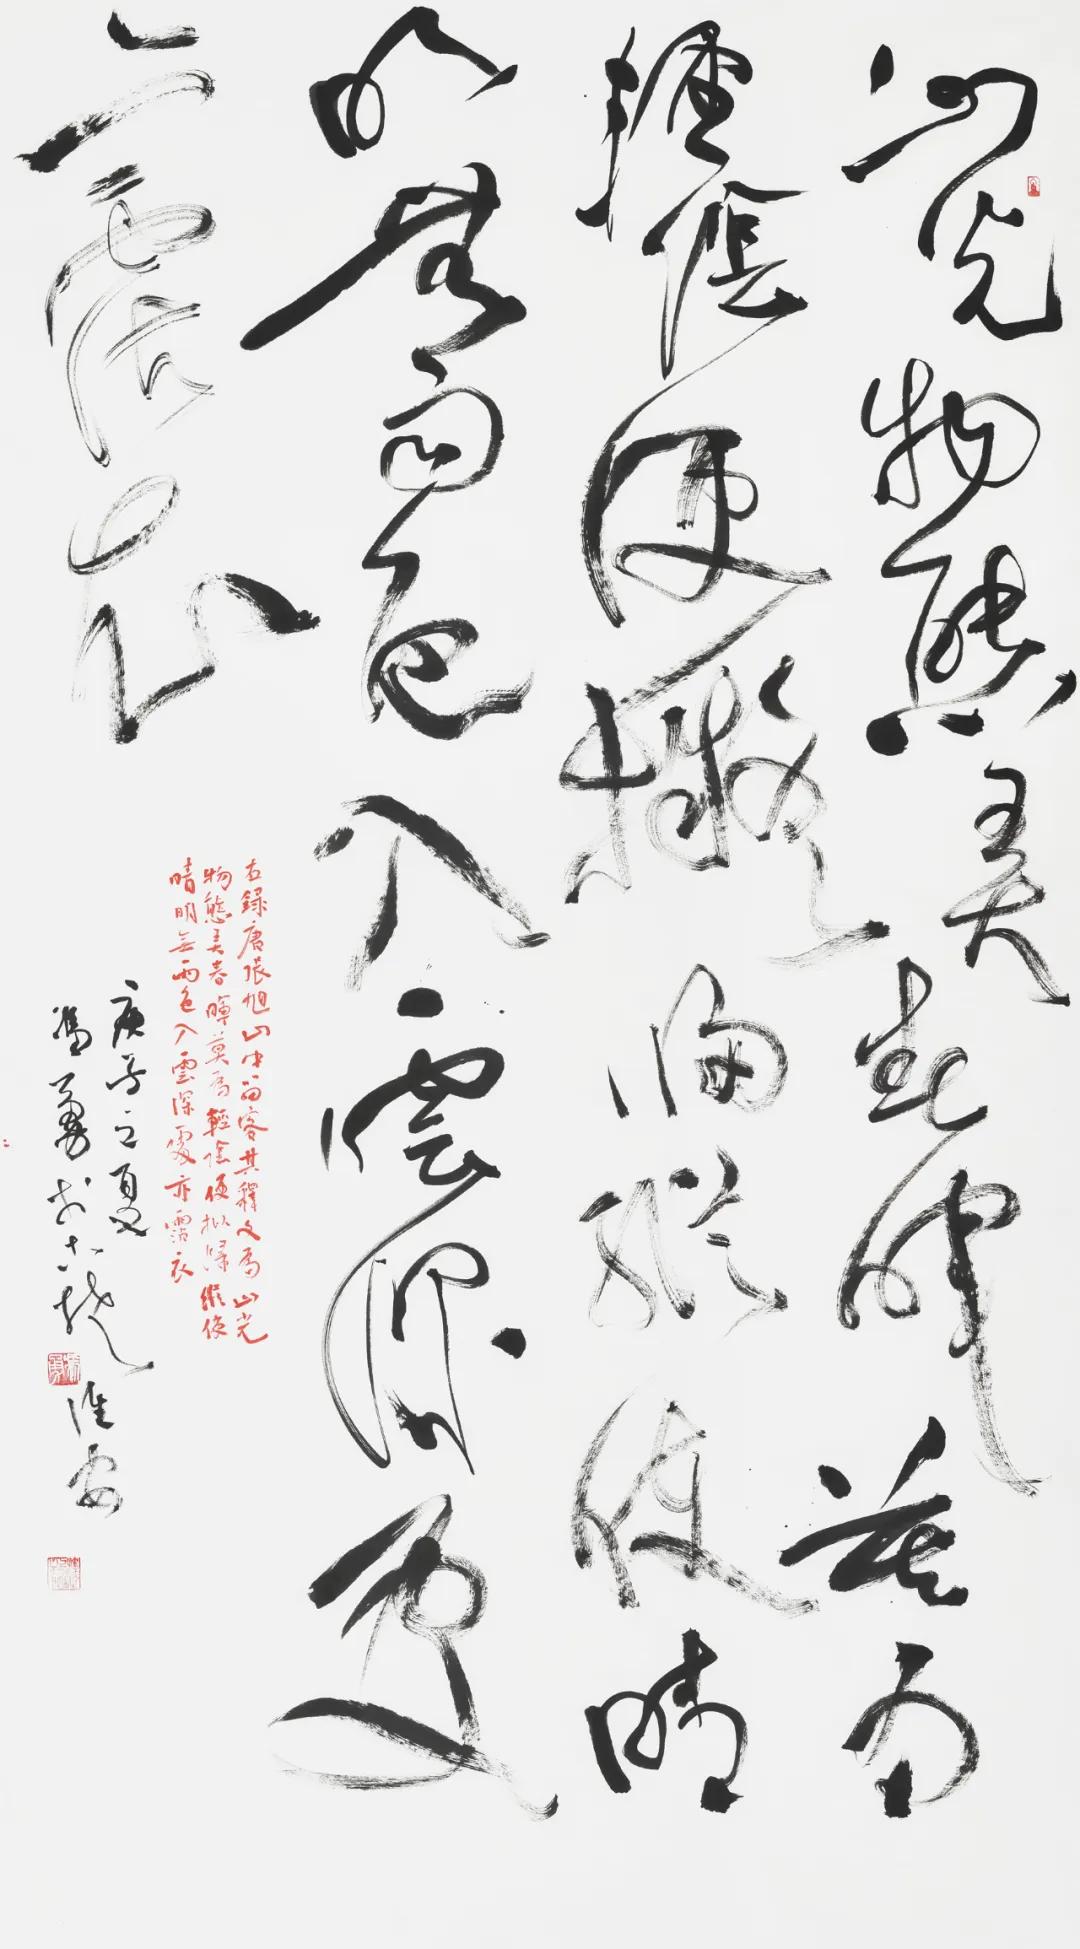 山光物態弄春暉莫為
輕陰便擬歸縱使晴
明無雨色入雲深處
亦霑衣
右錄唐張旭山中留客其釋文為山光
物態弄春暉莫為輕陰便拟歸縱使
晴明无雨色入雲深處亦霑衣
庚子之夏
馮勇於古楚淮安